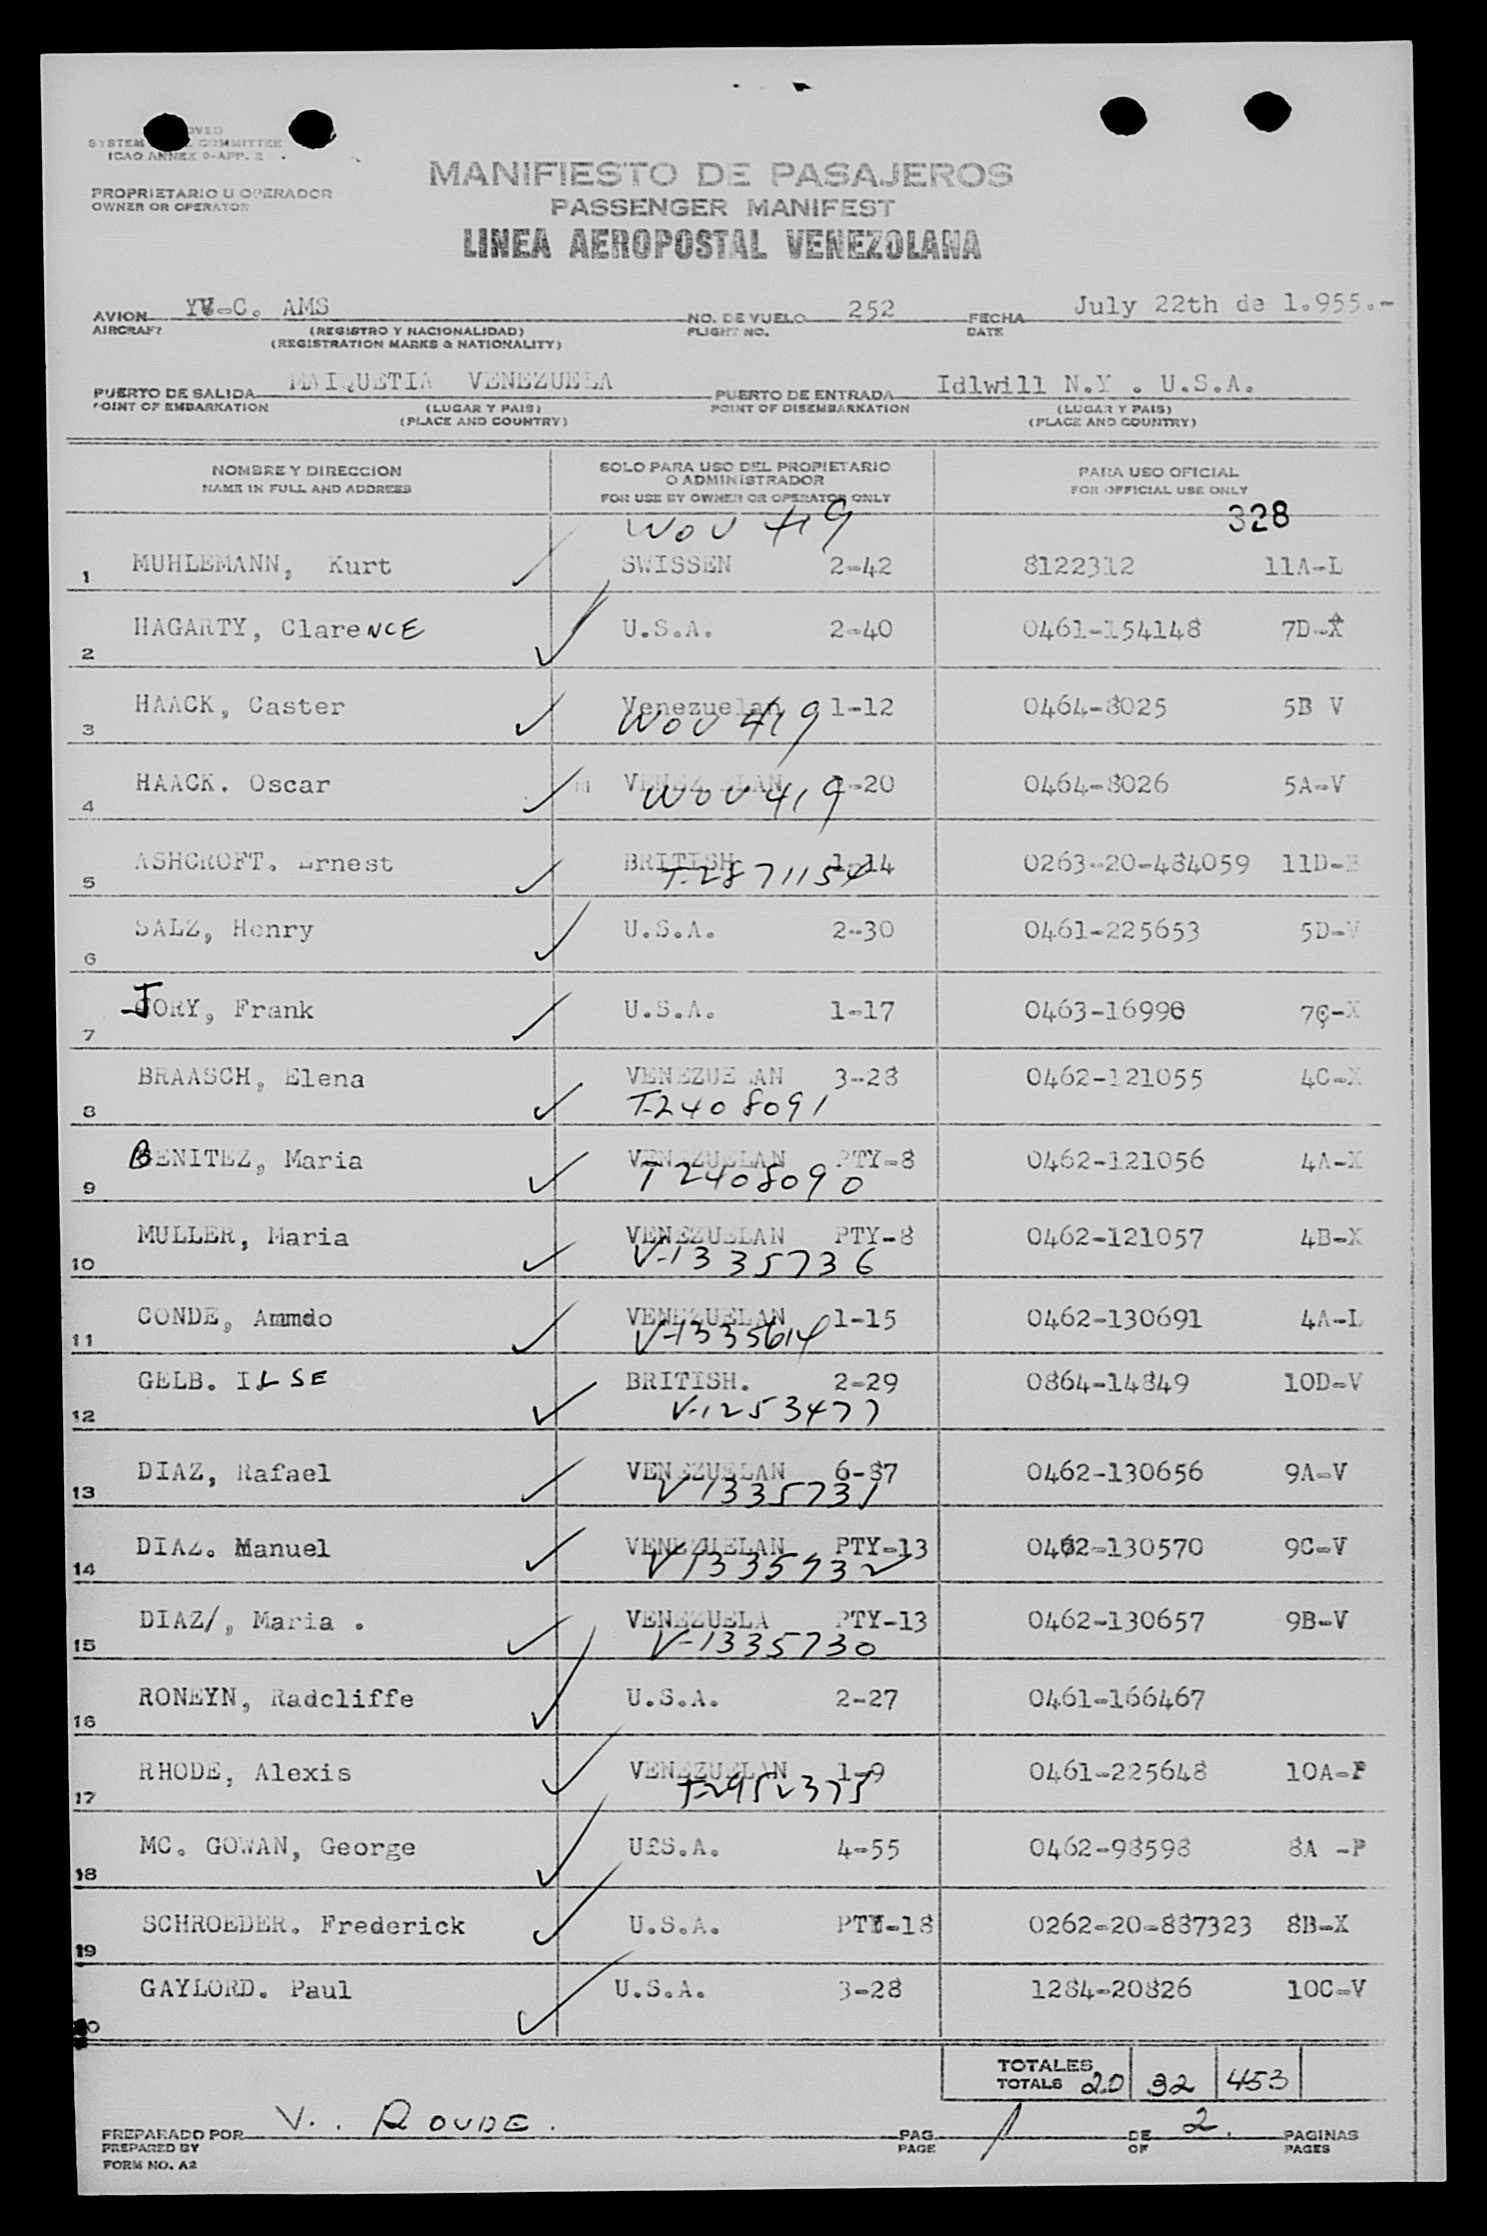 SYSTEM COMMITTEE
ICAO ANNEX 9-APP. 2
PROPRIETARIO U OPERADOR
OWNER OR OPERATOR
MANIFIESTO DE PASAJEROS
PASSENGER MANIFEST
LINEA AEROPOSTAL VENEZOLANA
AVION YV-C. AMS NO. DE VUELO 252 FECHA July 22th de 1.955.-
AIRCRAFT (REGISTRO Y NACIONALIDAD) FLIGHT NO. DATE
(REGISTRATION MARKS & NATIONALITY)
PUERTO DE SALIDA MAIQUETIA VENEZUELA PUERTO DE ENTRADA Idlwill N.Y . U.S.A.
POINT OF EMBARKATION (LUGAR Y PAIS) POINT OF DISEMBARKATION (LUGAR Y PAIS)
(PLACE AND COUNTRY) (PLACE AND COUNTRY)
NOMBRE Y DIRECCION SOLO PARA USO DEL PROPIETARIO PARA USO OFICIAL
O ADMINISTRADOR
NAME IN FULL AND ADDRESS FOR USE BY OWNER OR OPERATOR ONLY FOR OFFICIAL USE ONLY
WOV 419 328
1 MUHLEMANN, Kurt SWISSEN 2-42 8122312 11A-L
2 HAGARTY, ClareNCE U.S.A. 2-40 0461-154148 7D-X
3 HAACK, Caster Venezuelan 1-12 0464-8025 5B V
WOV 419
4 HAACK. Oscar VENEZUELAN -20 0464-8026 5A-V
WOV 419
5 ASHCROFT. Ernest BRITISH 1-14 0263-20-484059 11D-
T-2871154
6 SALZ, Henry U.S.A. 2-30 0461-225653 5D-V
7 JORY, Frank U.S.A. 1-17 0463-16998 7C-X
8 BRAASCH, Elena VENEZUE AN 3-28 0462-121055 4C-X
T-2408091
9 BENITEZ, Maria VENEZUELAN PTY-8 0462-121056 4A-X
T 2408090
10 MULLER, Maria VENEZUELAN PTY-8 0462-121057 4B-X
V-1335736
11 CONDE, Ammdo VENEZUELAN 1-15 0462-130691 4A-L
V-1335614
12 GELB. ILSE BRITISH. 2-29 0864-14849 10D-V
V-1253477
13 DIAZ, Rafael VENEZUELAN 6-87 0462-130656 9A-V
V-1335731
14 DIAZ. Manuel VENEZUELAN PTY-13 0462-130570 9C-V
V1335732
15 DIAZ/, Maria . VENEZUELA PTY-13 0462-130657 9B-V
V-1335730
16 RONEYN, Radcliffe U.S.A. 2-27 0461-166467
17 RHODE, Alexis VENEZUELAN 1-9 0461-225648 10A-P
T-2952375
18 MC. GOWAN, George U£S.A. 4-55 0462-98598 8A -P
19 SCHROEDER. Frederick U.S.A. PTY-18 0262-20-887323 8B-X
20 GAYLORD. Paul U.S.A. 3-28 1284-20826 10C-V
TOTALES
TOTALS 20 32 453
PREPARADO POR V. . ROUDE. PAG. 1 DE 2. PAGINAS
PREPARED BY PAGE OF PAGES
FORM NO. A2